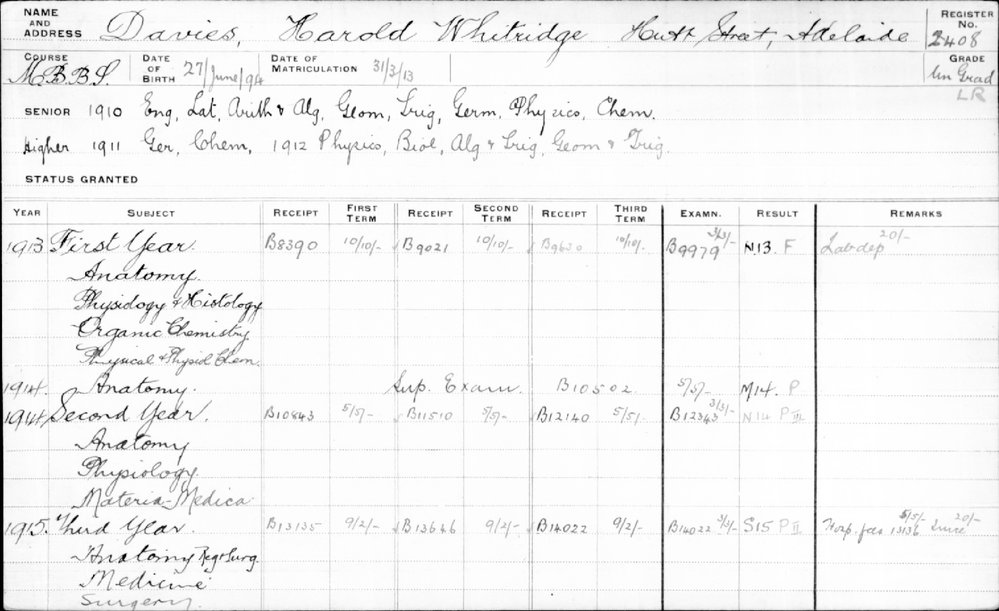 NAME AND ADDRESS Davies, Harold Whitridge Hutt Street, Adelaide REGISTER No. 2408
COURSE M.B.B.S. DATE OF BIRTH 27/June/94 DATE OF MATRICULATION 31/3/13 GRADE Un Grad
LR
SENIOR 1910 Eng, Lat, Arith & Alg, Geom, Trig, Germ, Physics, Chem.
Higher 1911 Ger, Chem, 1912 Physics, Biol, Alg & Trig, Geom & Trig.
STATUS GRANTED
YEAR SUBJECT RECEIPT FIRST TERM RECEIPT SECOND TERM RECEIPT THIRD TERM EXAMN. RESULT REMARKS
1913 First Year. B8390 10/10/- B9021 10/10/- B9630 10/10/- B9979 3/3/- N.13. F Lab dep 20/-
Anatomy.
Physiology & Histology
Organic Chemistry
Physical & Physiol Chem.
1914. Anatomy. Sup. Exam. B10502 5/5/- M14. P
1914 Second Year. B10843 5/5/- B11510 5/5/- B12140 5/5/- B12343 3/3/- N14 P III
Anatomy
Physiology.
Materia-Medica
1915. Third Year. B13135 9/2/- B13646 9/2/- B14022 9/2/- B14022 3/3/- S15 P II Hosp. fees 13136 5/5/- 20/-
Anatomy Reg & Surg.
Medicine
Surgery.